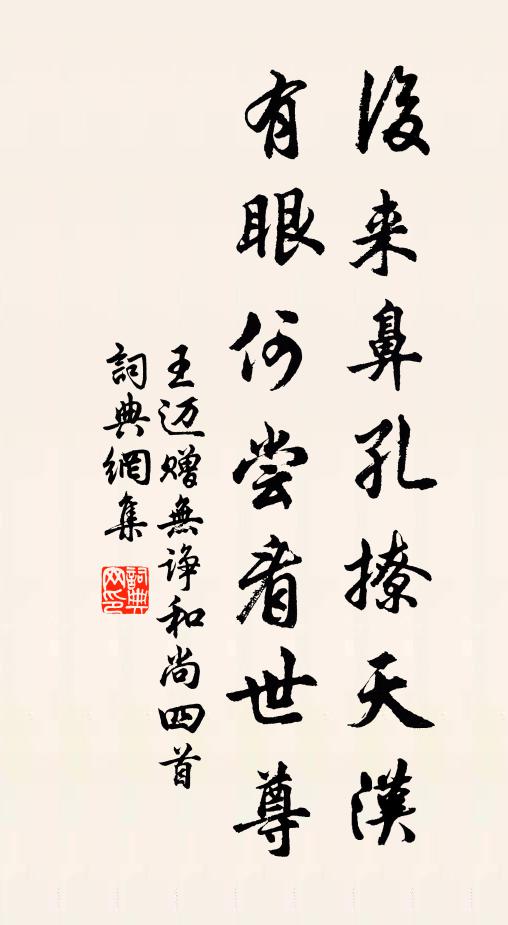 後来鼻孔撩天漢
有眼何尝看世尊
王迈赠無诤和尚四首
詞典網集
詞典
网印